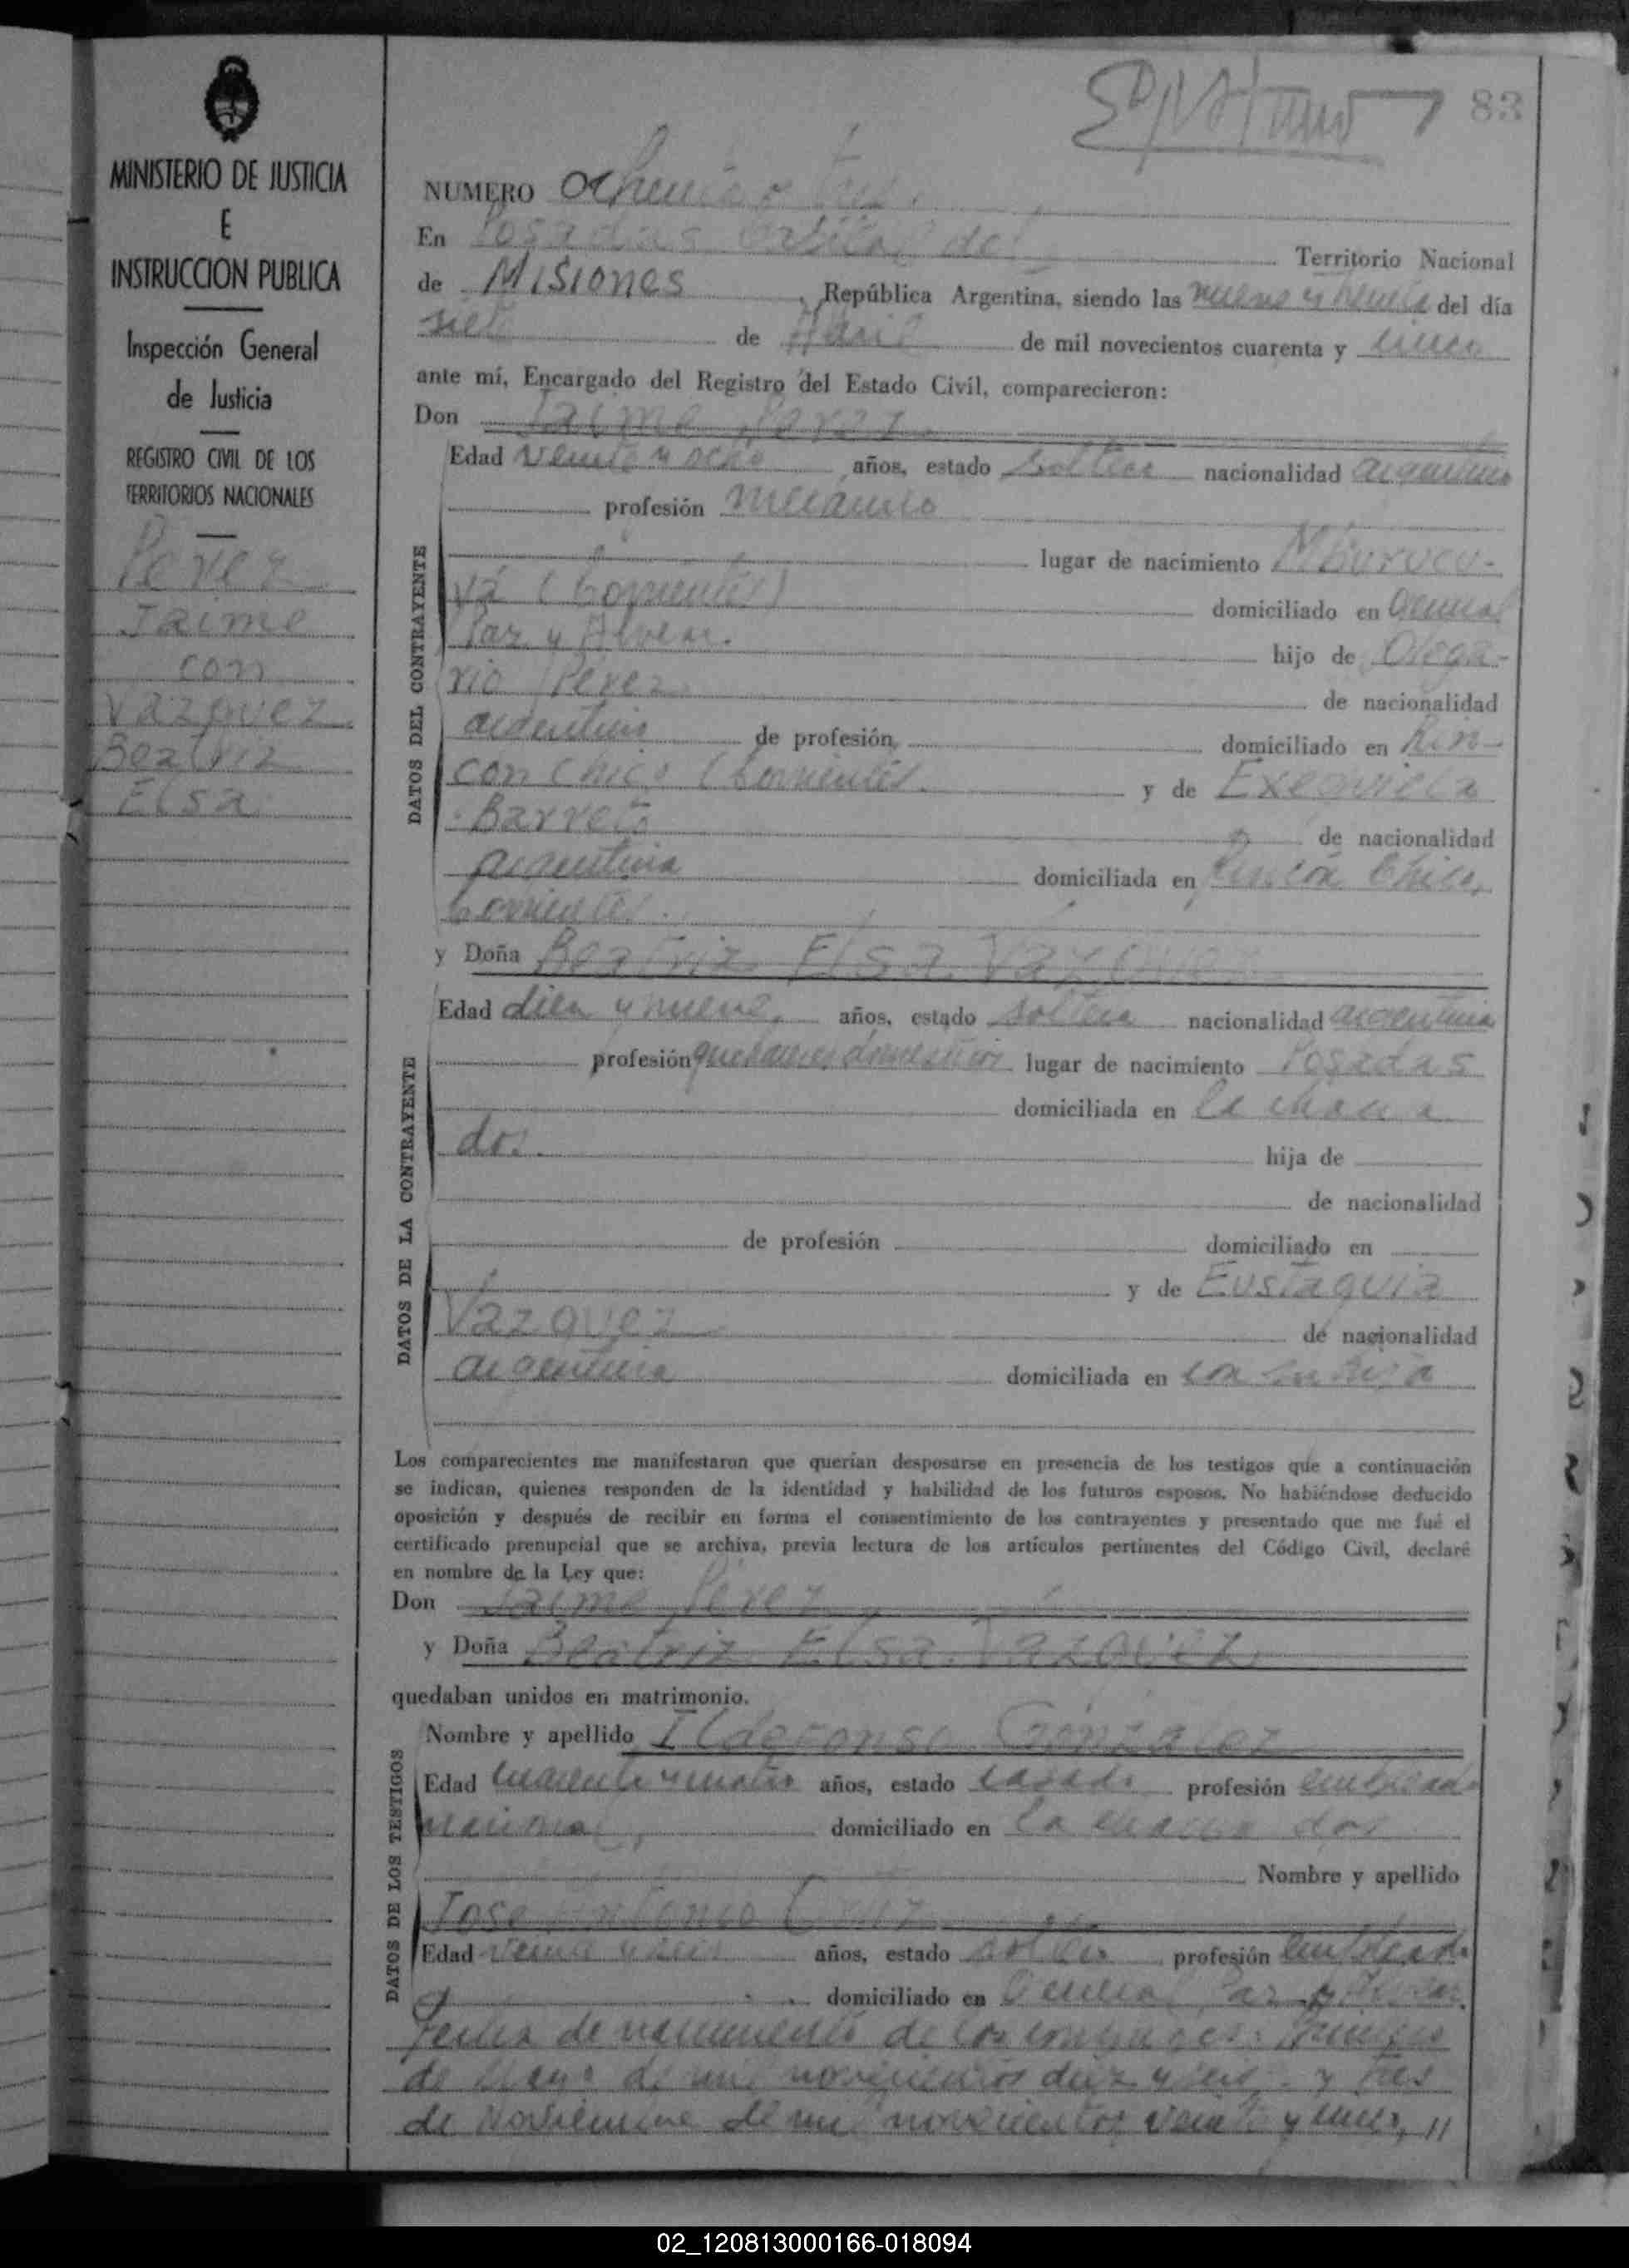 83
MINISTERIO DE JUSTICIA
E
INSTRUCCION PUBLICA
Inspección General
de Justicia
REGISTRO CIVIL DE LOS
TERRITORIOS NACIONALES
Perez
Jaime
con
Vazquez
Beatriz
Elsa
NUMERO Ochenta y tres.
En Posadas Capital del Territorio Nacional
de Misiones, República Argentina, siendo las nueve y treinta del día
siete de Abril de mil novecientos cuarenta y cinco
ante mí, Encargado del Registro del Estado Civil, comparecieron:
Don Jaime Perez
DATOS DEL CONTRAYENTE
Edad veinte y ocho años, estado soltero nacionalidad argentino
profesión mecánico
lugar de nacimiento Mburucu-
yá (Corrientes) domiciliado en General
Paz y Alvear. hijo de Olega-
rio Pérez de nacionalidad
argentino de profesión domiciliado en Rin-
con Chico (Corrientes. y de Exequiela
Barreto de nacionalidad
argentina domiciliada en Rincón Chico,
Corrientes.
y Doña Beatriz Elsa Vázquez
DATOS DE LA CONTRAYENTE
Edad diez y nueve, años, estado soltera nacionalidad argentina
profesión quehaceres domesticos lugar de nacimiento Posadas
domiciliada en la chacra
dos. hija de
de nacionalidad
de profesión domiciliado en
y de Eustaquia
Vázquez de nacionalidad
argentina domiciliada en con su hija
Los comparecientes me manifestaron que querían desposarse en presencia de los testigos que a continuación
se indican, quienes responden de la identidad y habilidad de los futuros esposos. No habiéndose deducido
oposición y después de recibir en forma el consentimiento de los contrayentes y presentado que me fué el
certificado prenupcial que se archiva, previa lectura de los artículos pertinentes del Código Civil, declaré
en nombre de la Ley que:
Don Jaime Pérez
y Doña Beatriz Elsa Vazquez
quedaban unidos en matrimonio.
DATOS DE LOS TESTIGOS
Nombre y apellido Ildefonso González
Edad cuarenta y cuatro años, estado casado profesión empleado
nacional, domiciliado en la chacra dos
Nombre y apellido
Jose Antonio
Edad veinte y seis años, estado soltero profesión empleado
domiciliado en General Paz y Alvear.
Fecha de nacimiento de los conyuges:
de Mayo de mil novecientos diez y seis y tres
de Noviembre de mil novecientos veinte y cinco, //
02_120813000166-018094